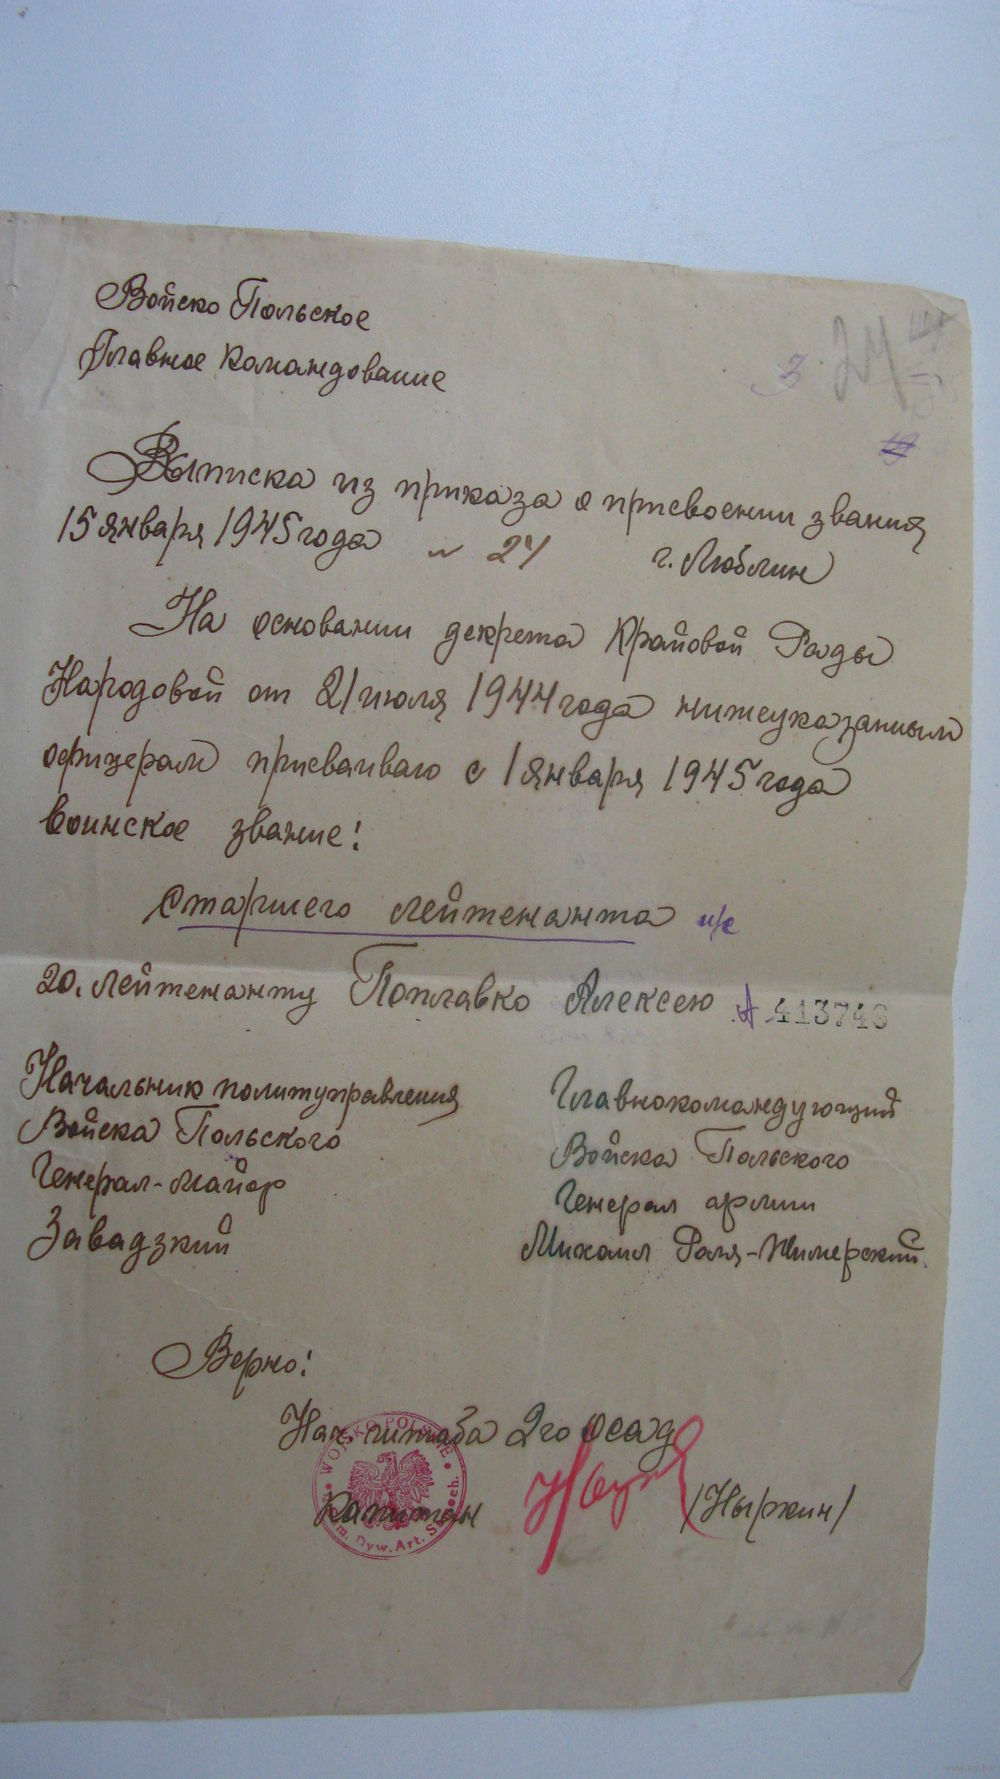 Войско Польское
Главное Командование
3. 24
Выписка из приказа о присвоении звания
15 января 1945 года № 24 г. Люблин
На основании декрета Крайовой Рады
Народовой от 21 июля 1944 года нижеуказанным
офицерам присваиваю с 1 января 1945 года
воинское звание:
Старшего лейтенанта и/с
20. лейтенанту Поплавко Алексею А 413746
Начальник политуправления
Войска Польского
Генерал-майор
Завадзкий
Главнокомандующий
Войска Польского
Генерал армии
Михаил Роля-Жимерский.
Верно:
Нач. штаба 2го осад
Капитан /Ныркин/
WOJSKO POLSKIE
Dyw. Art.